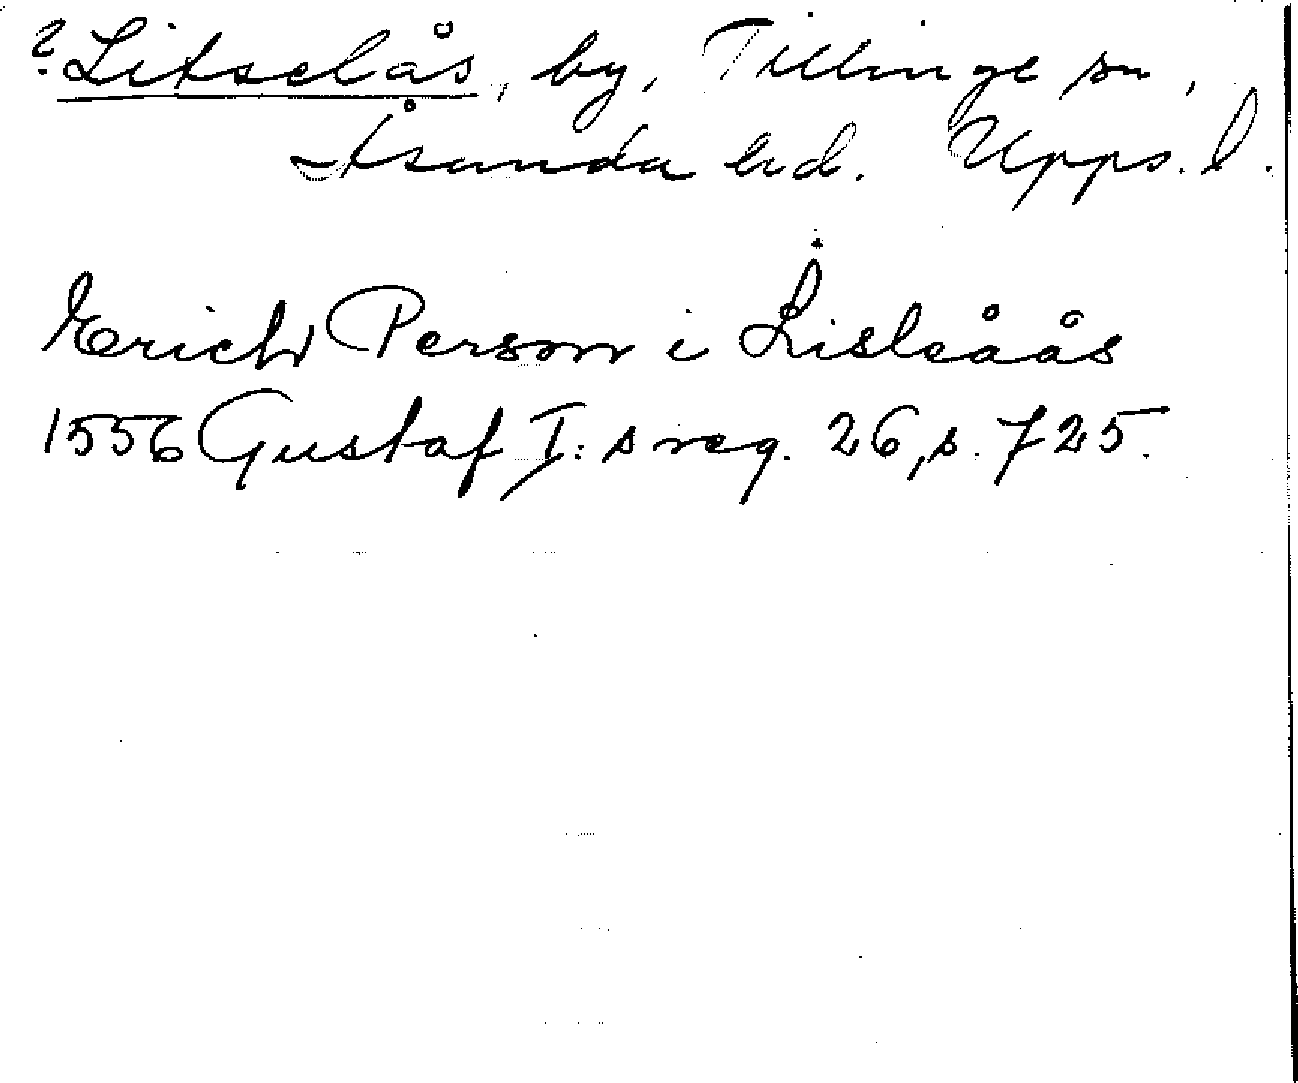 ? Litselås, by, Tillinge sn,
Åsunda hd. Upps. l.
Erich Person i Lisleåås
1556 Gustaf I:s reg. 26, s. 725.